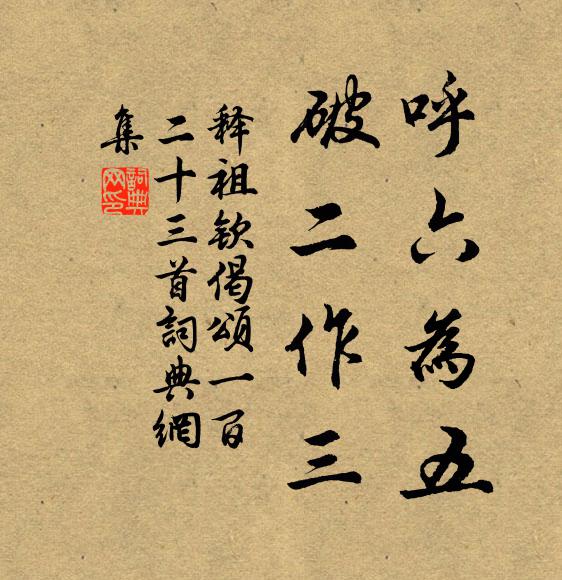 呼六為五
破二作三
释祖欽偈頌一百
二十三首詞典網
集
詞典網印